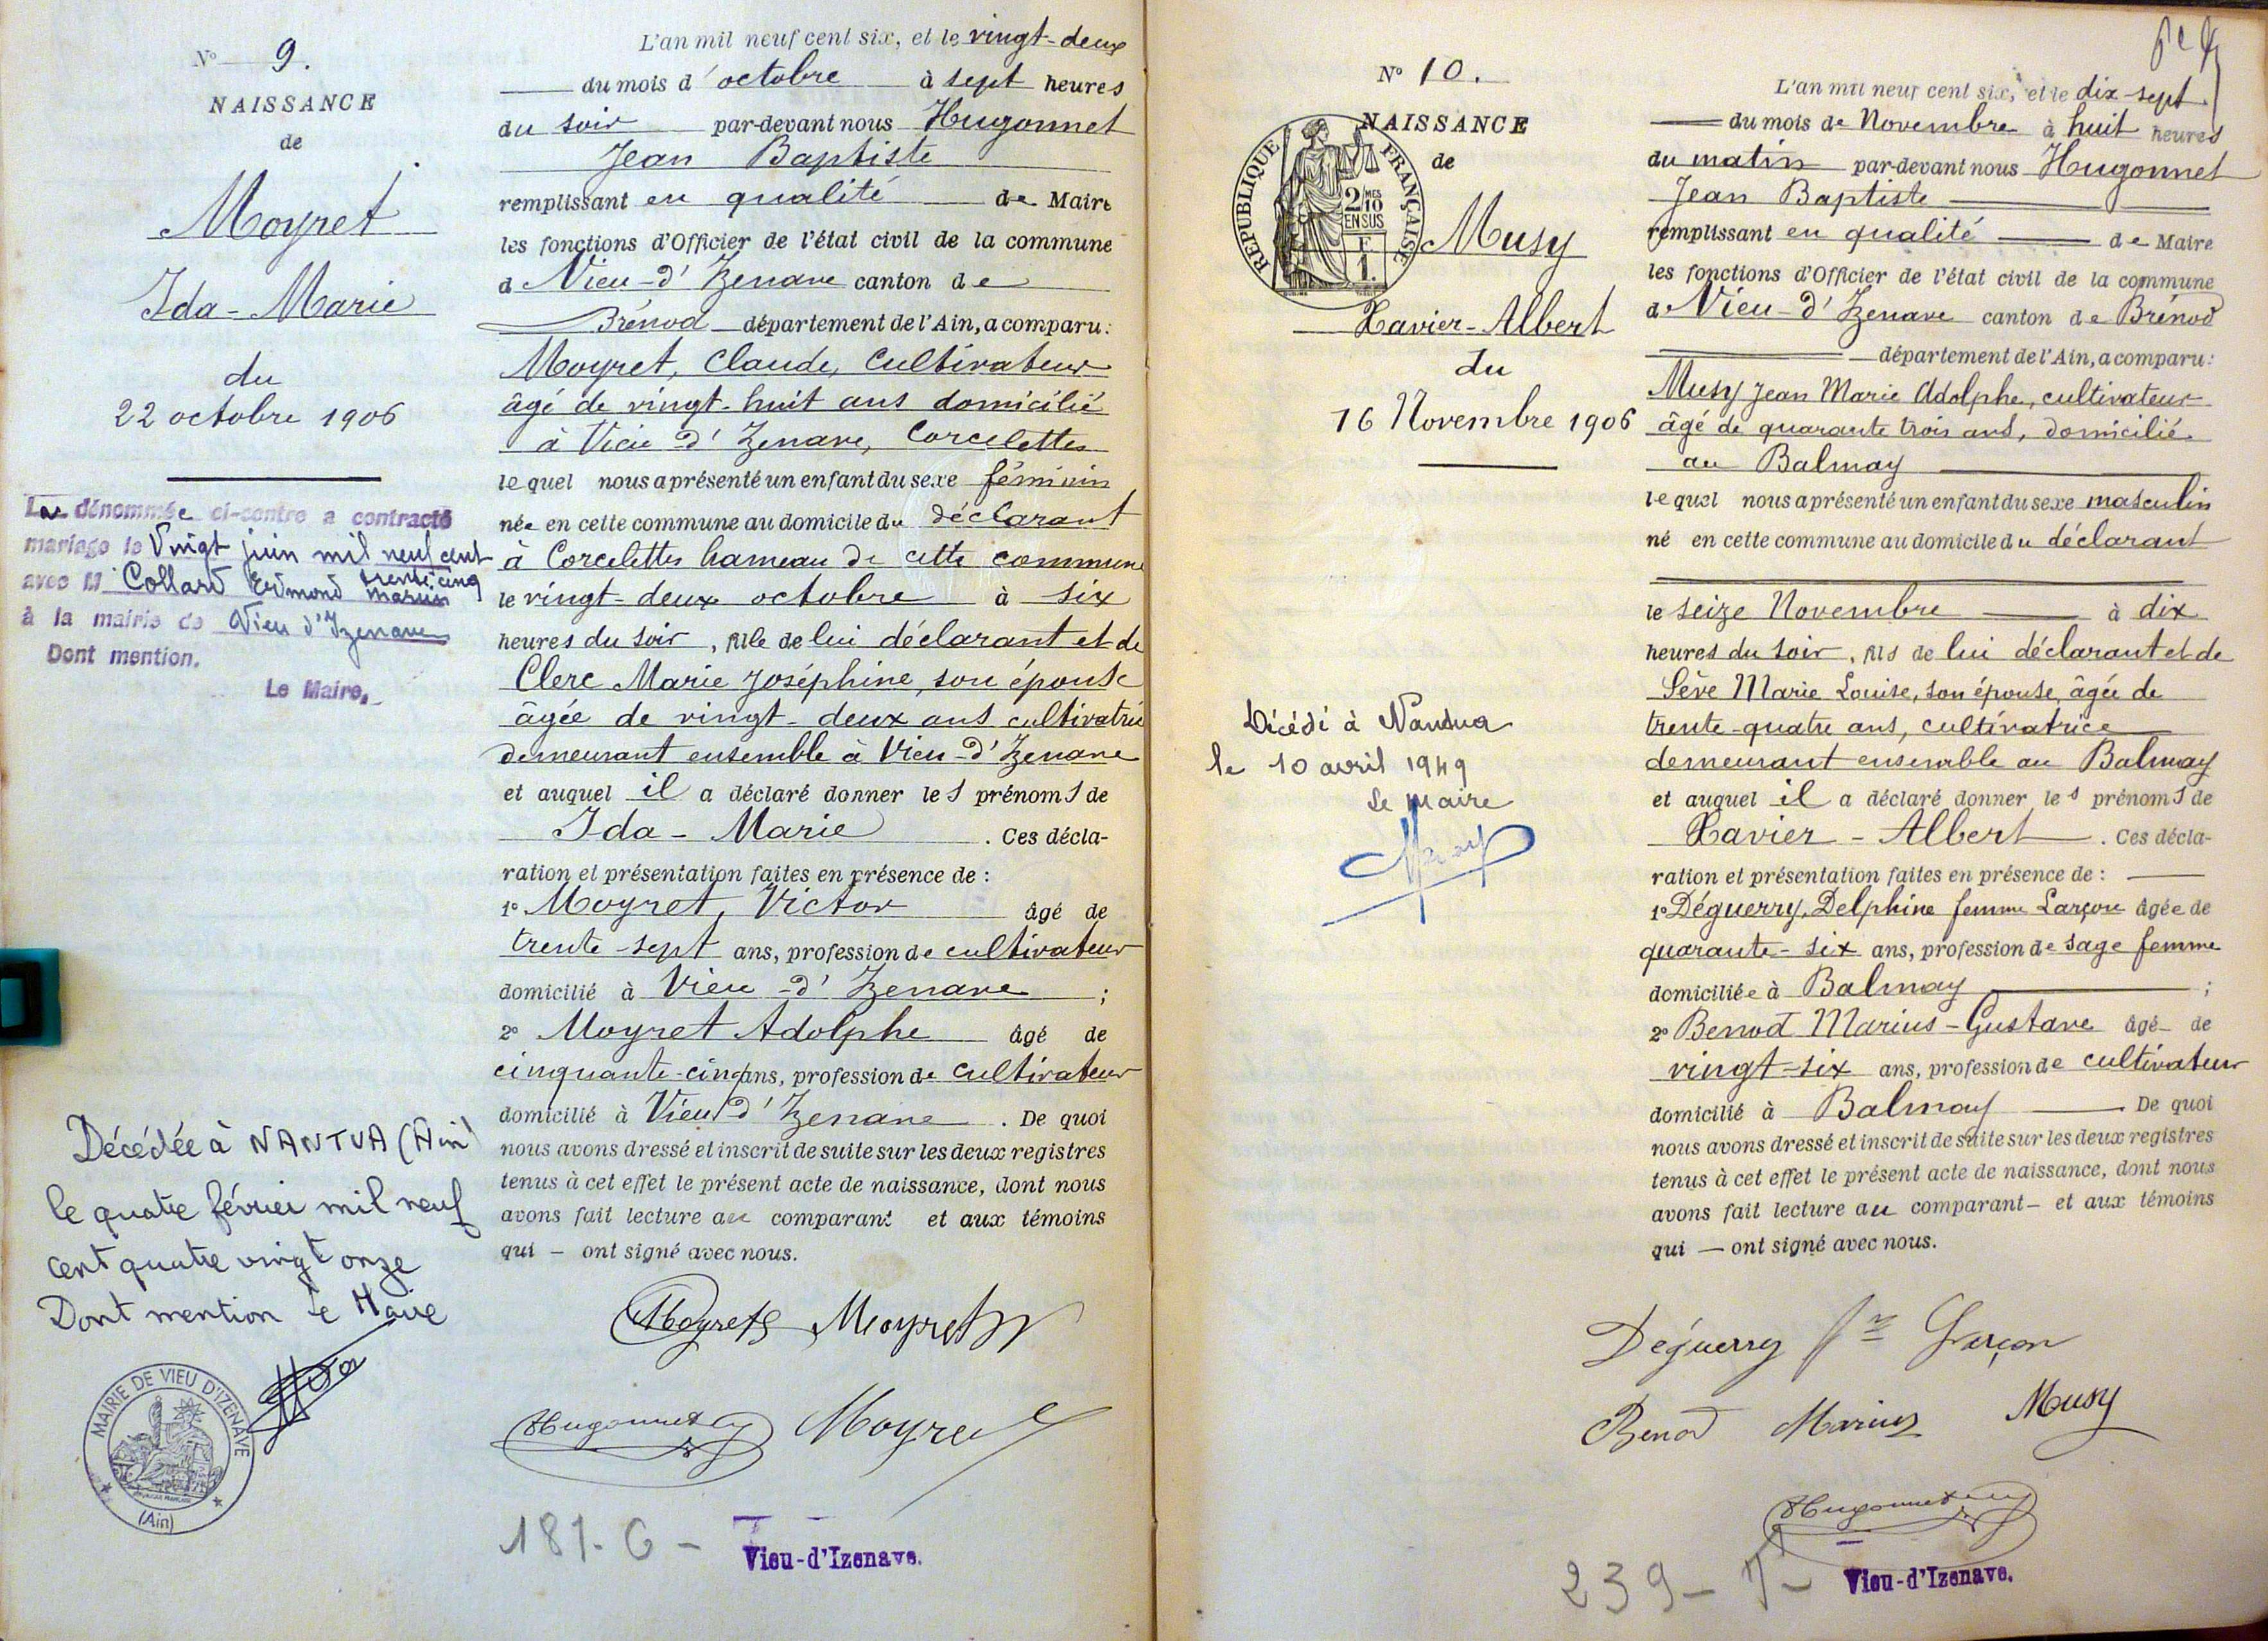 N° 9.
NAISSANCE
de
Moyret
Ida-Marie
du
22 octobre 1906
La dénommée ci-contre a contracté
mariage le Vingt juin mil neuf cent
trente cinq
avec M Collard Edmond Marius
à la mairie de Vieu d'Izenave
Dont mention.
Le Maire,
Décédée à NANTUA (Ain)
le quatre février mil neuf
cent quatre vingt onze
Dont mention le Maire
MAIRIE DE VIEU D'IZENAVE
(Ain)
L'an mil neuf cent six, et le vingt-deux
du mois d'octobre à sept heures
du soir par-devant nous Hugonnet
Jean Baptiste
remplissant en qualité de Maire
les fonctions d'Officier de l'état civil de la commune
d Vieu-d'Izenave canton de
Brénod département de l'Ain, a comparu:
Moyret, Claude, Cultivateur
âgé de vingt-huit ans domicilié
à Vieu d'Izenave, Corcelettes
lequel nous a présenté un enfant du sexe féminin
née en cette commune au domicile du déclarant
à Corcelettes hameau de cette commune
le vingt-deux octobre à six
heures du soir, fille de lui déclarant et de
Clerc Marie Joséphine, son épouse
âgée de vingt-deux ans cultivatrice
demeurant ensemble à Vieu-d'Izenave
et auquel il a déclaré donner les prénoms de
Ida-Marie. Ces décla-
ration et présentation faites en présence de :
1° Moyret, Victor âgé de
trente-sept ans, profession de cultivateur
domicilié à Vieu-d'Izenave ;
2° Moyret Adolphe âgé de
cinquante-cinq ans, profession de cultivateur
domicilié à Vieu d'Izenave. De quoi
nous avons dressé et inscrit de suite sur les deux registres
tenus à cet effet le présent acte de naissance, dont nous
avons fait lecture au comparant et aux témoins
qui - ont signé avec nous.
Moyret Moyret
Hugonnet Moyret
187-6-
Vieu-d'Izenave.
N° 10.
NAISSANCE
de
REPUBLIQUE FRANÇAISE
2/10 MES
EN SUS
F
1.
Musy
Xavier-Albert
du
16 Novembre 1906
Décédé à Nantua
le 10 avril 1949
Le maire
L'an mil neuf cent six, et le dix-sept
du mois de Novembre à huit heures
du matin par-devant nous Hugonnet
Jean Baptiste
remplissant en qualité de Maire
les fonctions d'Officier de l'état civil de la commune
de Vieu-d'Izenave canton de Brénod
département de l'Ain, a comparu:
Musy Jean Marie Adolphe, cultivateur
âgé de quarante trois ans, domicilié
au Balmay
lequel nous a présenté un enfant du sexe masculin
né en cette commune au domicile du déclarant
le seize Novembre à dix
heures du soir, fils de lui déclarant et de
Sève Marie Louise, son épouse, âgée de
trente-quatre ans, cultivatrice
demeurant ensemble au Balmay
et auquel il a déclaré donner les prénoms de
Xavier-Albert. Ces décla-
ration et présentation faites en présence de :
1° Déguerry, Delphine femme Garçon âgée de
quarante-six ans, profession de sage femme
domiciliée à Balmay ;
2° Benod Marius-Gustave âgé de
vingt-six ans, profession de cultivateur
domicilié à Balmay. De quoi
nous avons dressé et inscrit de suite sur les deux registres
tenus à cet effet le présent acte de naissance, dont nous
avons fait lecture au comparant et aux témoins
qui - ont signé avec nous.
Déguerry fe Garçon
Benod Marius Musy
Hugonnet
239-
Vieu-d'Izenave.